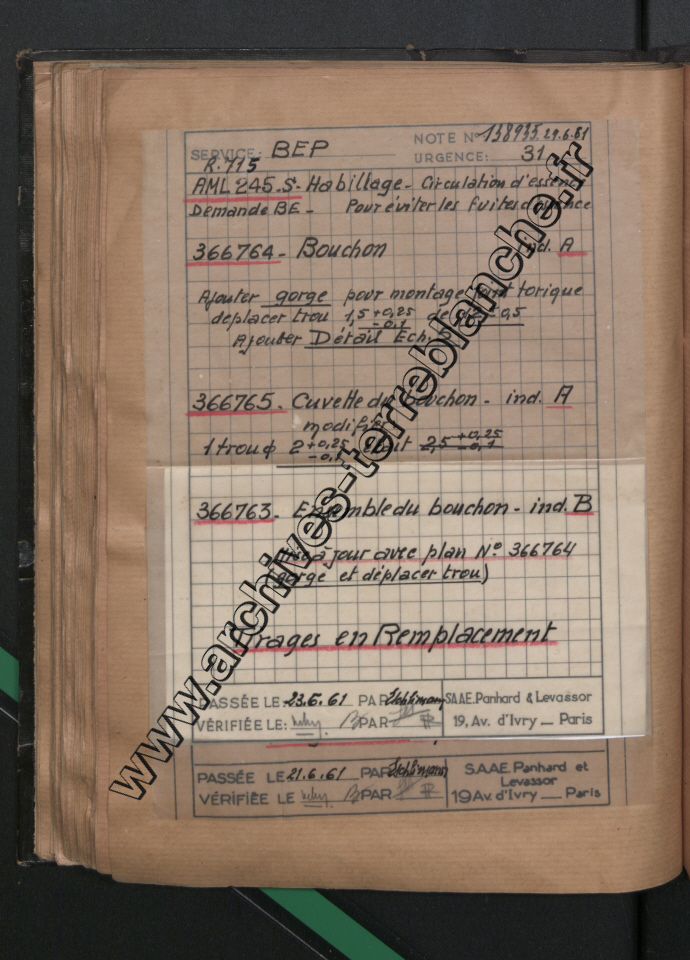 SERVICE: BEP NOTE N° 138935 29.6.61
R.715 URGENCE: 31
AML 245.S - Habillage - Circulation d'essence
Demande BE - Pour éviter les fuites d'essence
366764 - Bouchon ind. A
Ajouter gorge pour montage joint torique
déplacer trou 1,5 +0,25 -0,1 de
Ajouter Détail Ech.
366765. Cuvette du bouchon - ind. A
modifié
1 trou φ 2 +0,25 -0,1 était 2,5 +0,25 -0,1
366763 - Ensemble du bouchon - ind. B
Mise à jour avec plan N° 366764
(gorge et déplacer trou)
Tirages en Remplacement
PASSÉE LE 23.6.61 PAR SAAE. Panhard & Levassor
VÉRIFIÉE LE: PAR 19, Av. d'Ivry — Paris
PASSÉE LE 21.6.61 PAR S.A.A.E. Panhard et
Levassor
VÉRIFIÉE LE PAR 19 Av. d'Ivry — Paris
www.archives-terreblanche.fr